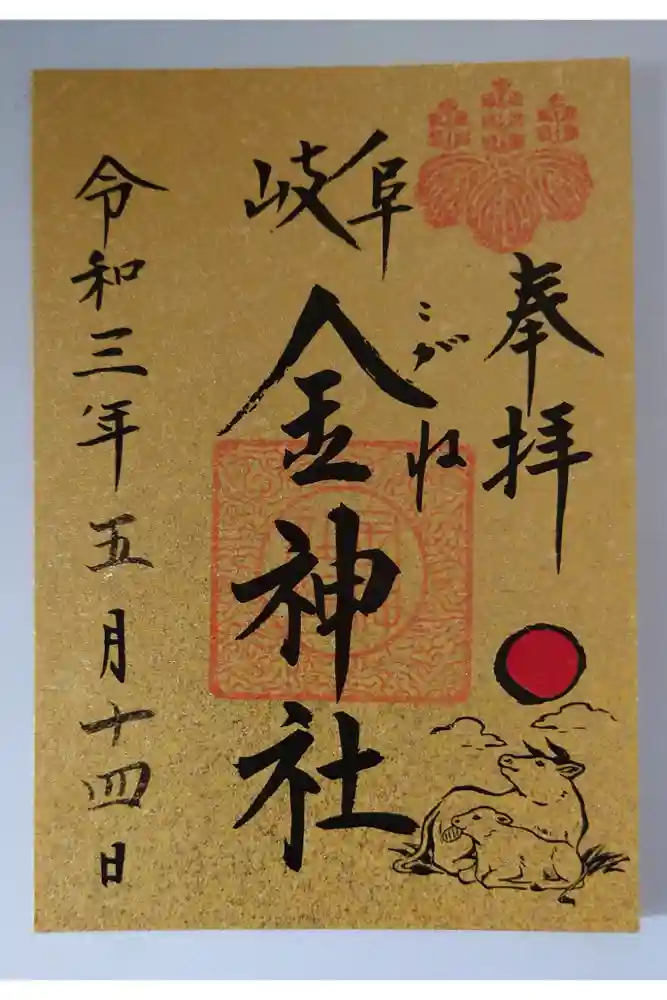 奉拝
岐阜
こがね
金神社
令和三年五月十四日